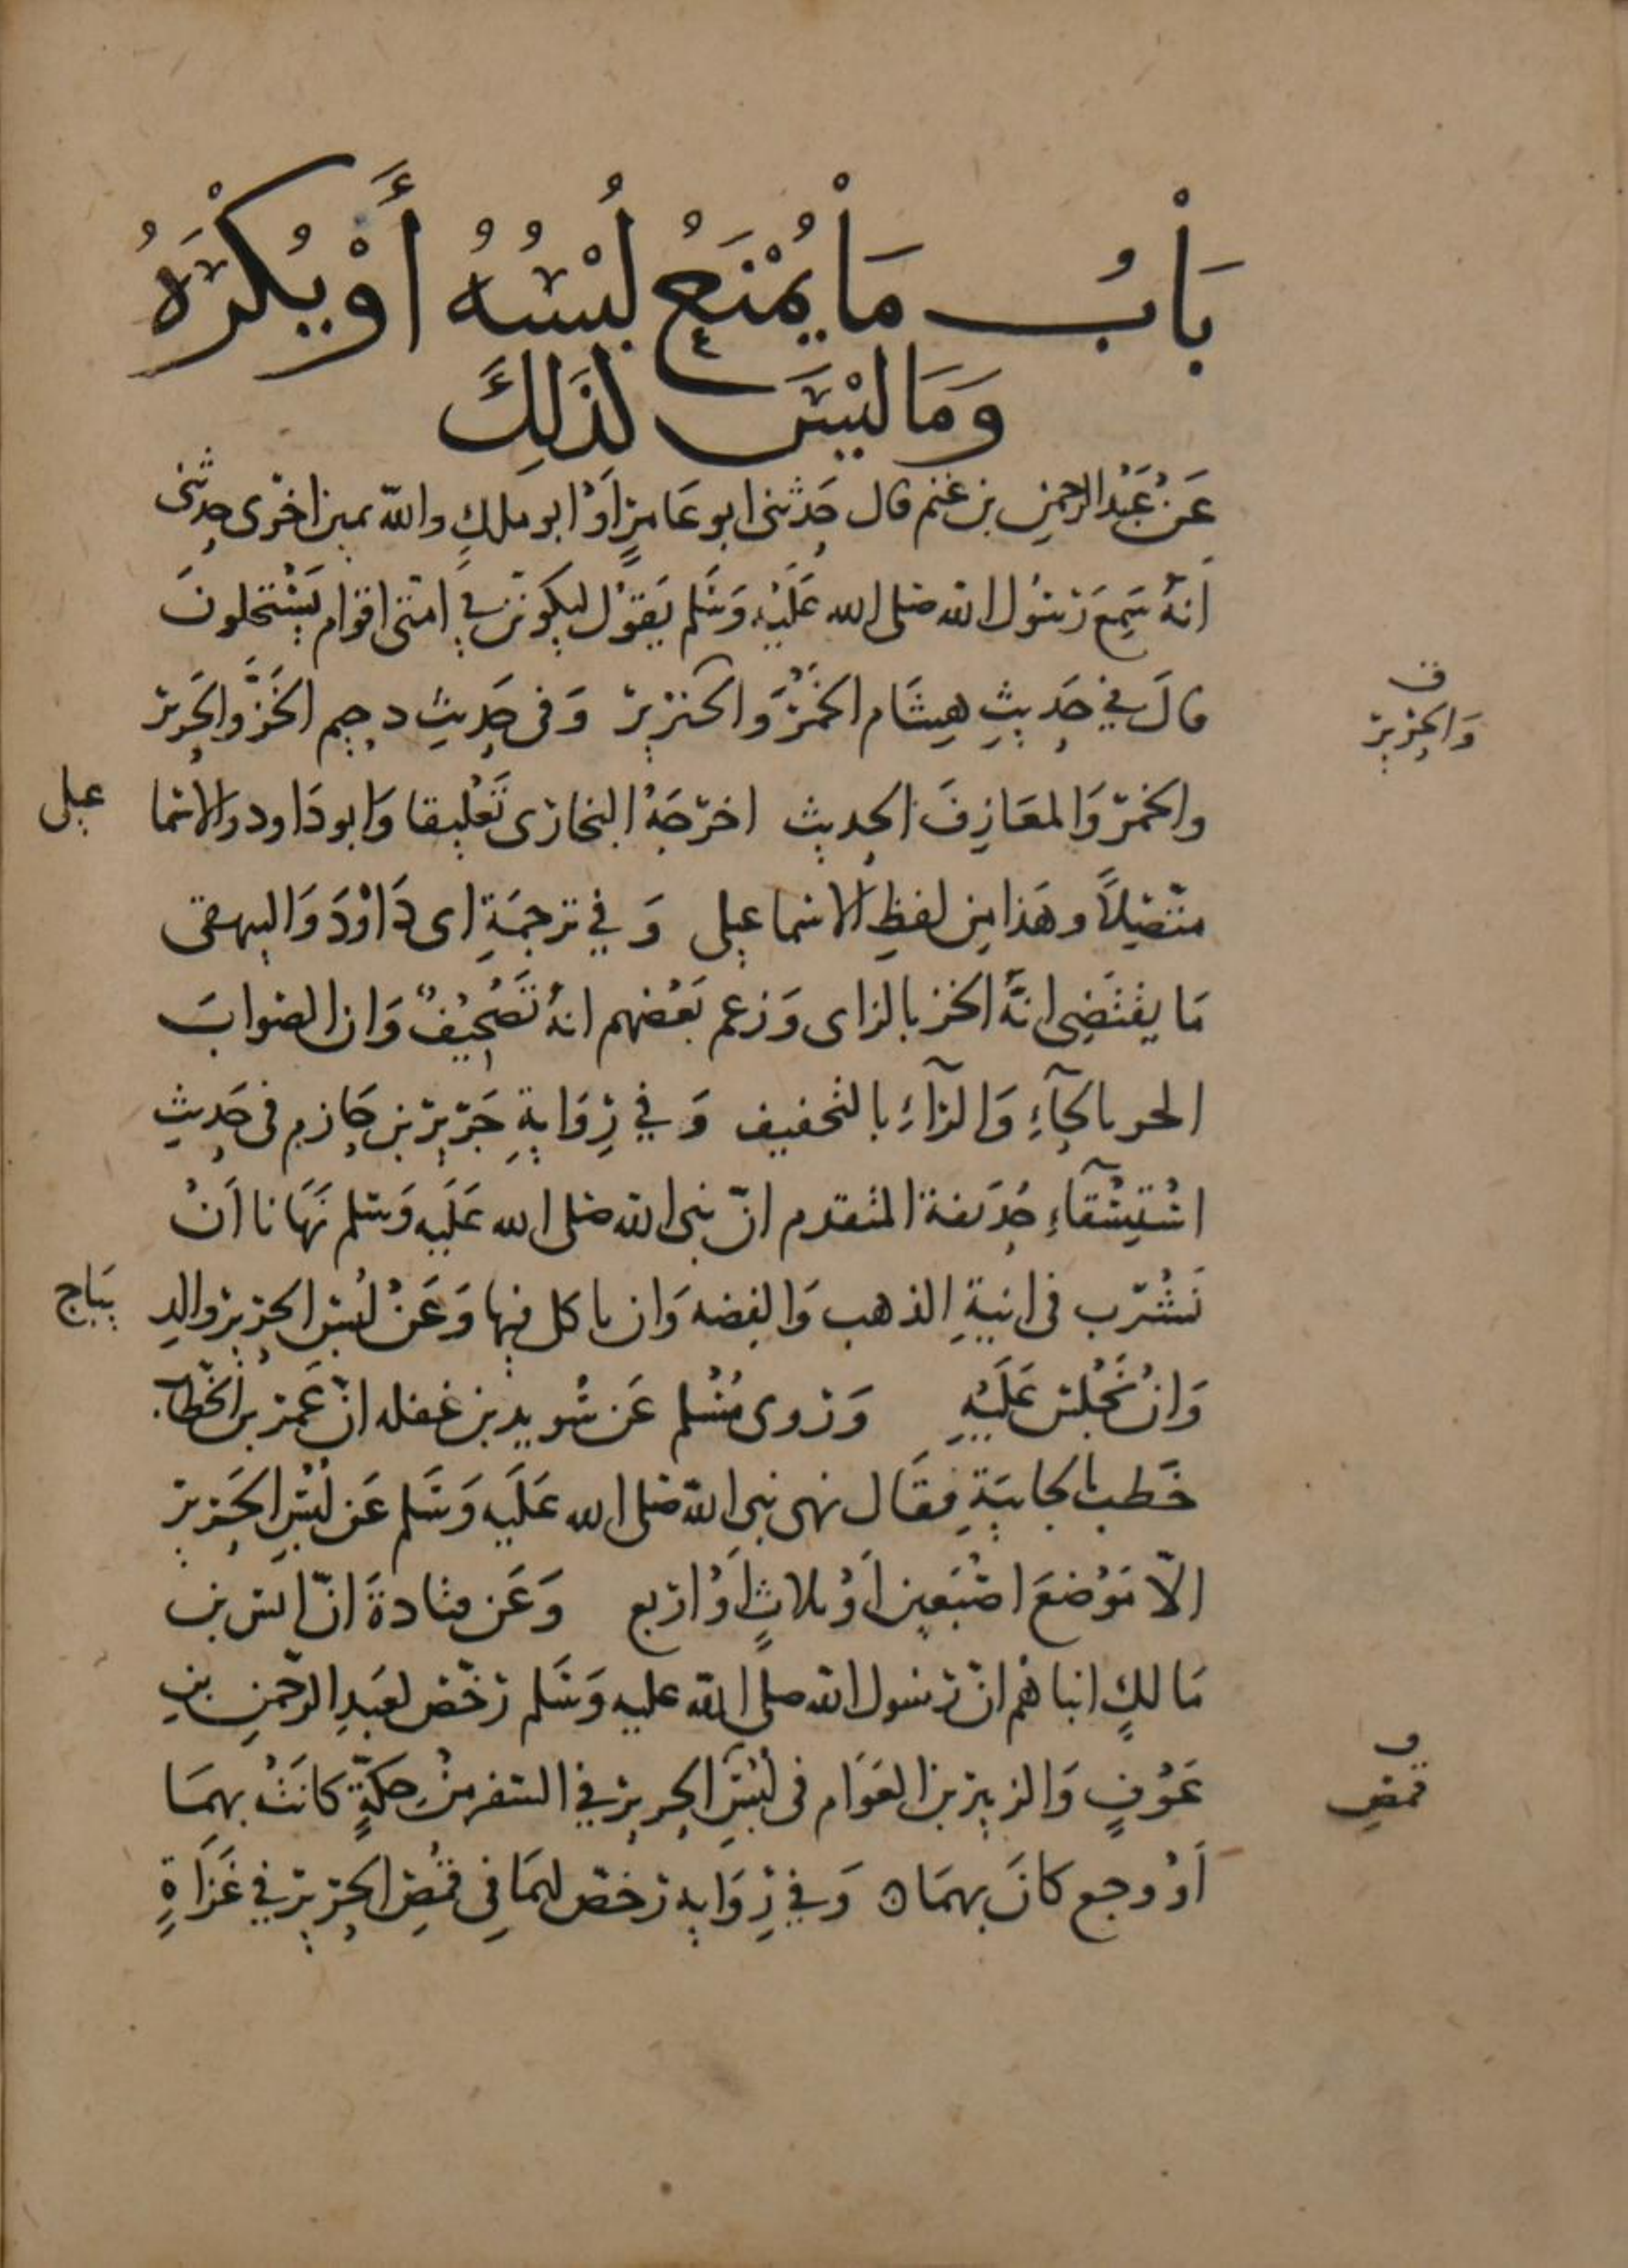 بَابُ مَا يُمْنَعُ لُبْسُهُ أَوْ يُكْرَهُ
وَمَا لَيْسَ كَذَلِكَ
عَنْ عَبْدِ الرحمنِ بن غنم قال حَدثنى ابو عَامرٍ اَوْ ابو ملكٍ والله يمين اخرى حدثنى
انهُ سَمِعَ رَسُول الله صلى الله عَلَيْهِ وَسَلم يَقوْل ليكونَن في امتى اقوام يَسْتحلونَ
قالَ في حَديثِ هِشَام الخمْرَ وَالخنزير وَفى حَديثِ دحيم الخَزَّ والحَرير
ف
وَالحرير
والخمر وَالمعَازِفَ الحديث اخرجَهُ البخارى تَعْليقا وَابو دَاود والاسما
عيلى
متصِلاً وهَذا مِن لفظِ الاسماعيلى وَفي ترجمَةِ ابى دَاوْدَ وَالبيهقى
مَا يقتَضِى انَّهُ الخز بالزاى وَزعم بَعْضهم انهُ تَصْحِيْفٌ وَان الصوابَ
الحر بالحآءِ وَالرآءِ بالتخفيف وَفي رِوَايةِ جَرير بن حَازم فى حَديثِ
اسْتِسْقآءِ حُذَيفة المتقدم انّ نبى الله صلى الله عَلَيه وَسَلم نَهَانا اَنْ
نَشْرَب فى انيةِ الذهب وَالفِضه وَان ناكل فيها وَعَنْ لُبْس الحرير والدِ
يبَاج
وَانْ نَجْلس عَلَيْهِ وَروى مُسْلم عَن سُويدِ بن غفله انّ عُمَر بن الخَطاب
خَطَب بالجابيَةِ فقَال نهى نبى الله صلى الله عَلَيه وَسَلم عَن لُبْسِ الحَرير
الّا مَوْضعَ اصْبَعين اَوْ ثلاثٍ اَوْ اربع وَعَن قتادةَ انّ انس بن
مَالكٍ انباهُم انّ رسول الله صلى الله عليه وَسَلم رَخّص لعَبدِ الرحمنِ بنِ
عَوْفٍ وَالزبير بن العَوَام فى لُبْسِ الحرير في السَفر مِنْ حكةٍ كانَتْ بهمَا
اَوْ وجع كانَ بهمَا ه وَفي رِوَايه رَخص لهمَا فِى قمُصِ الحرير في غَزَاةٍ
ف
قمص